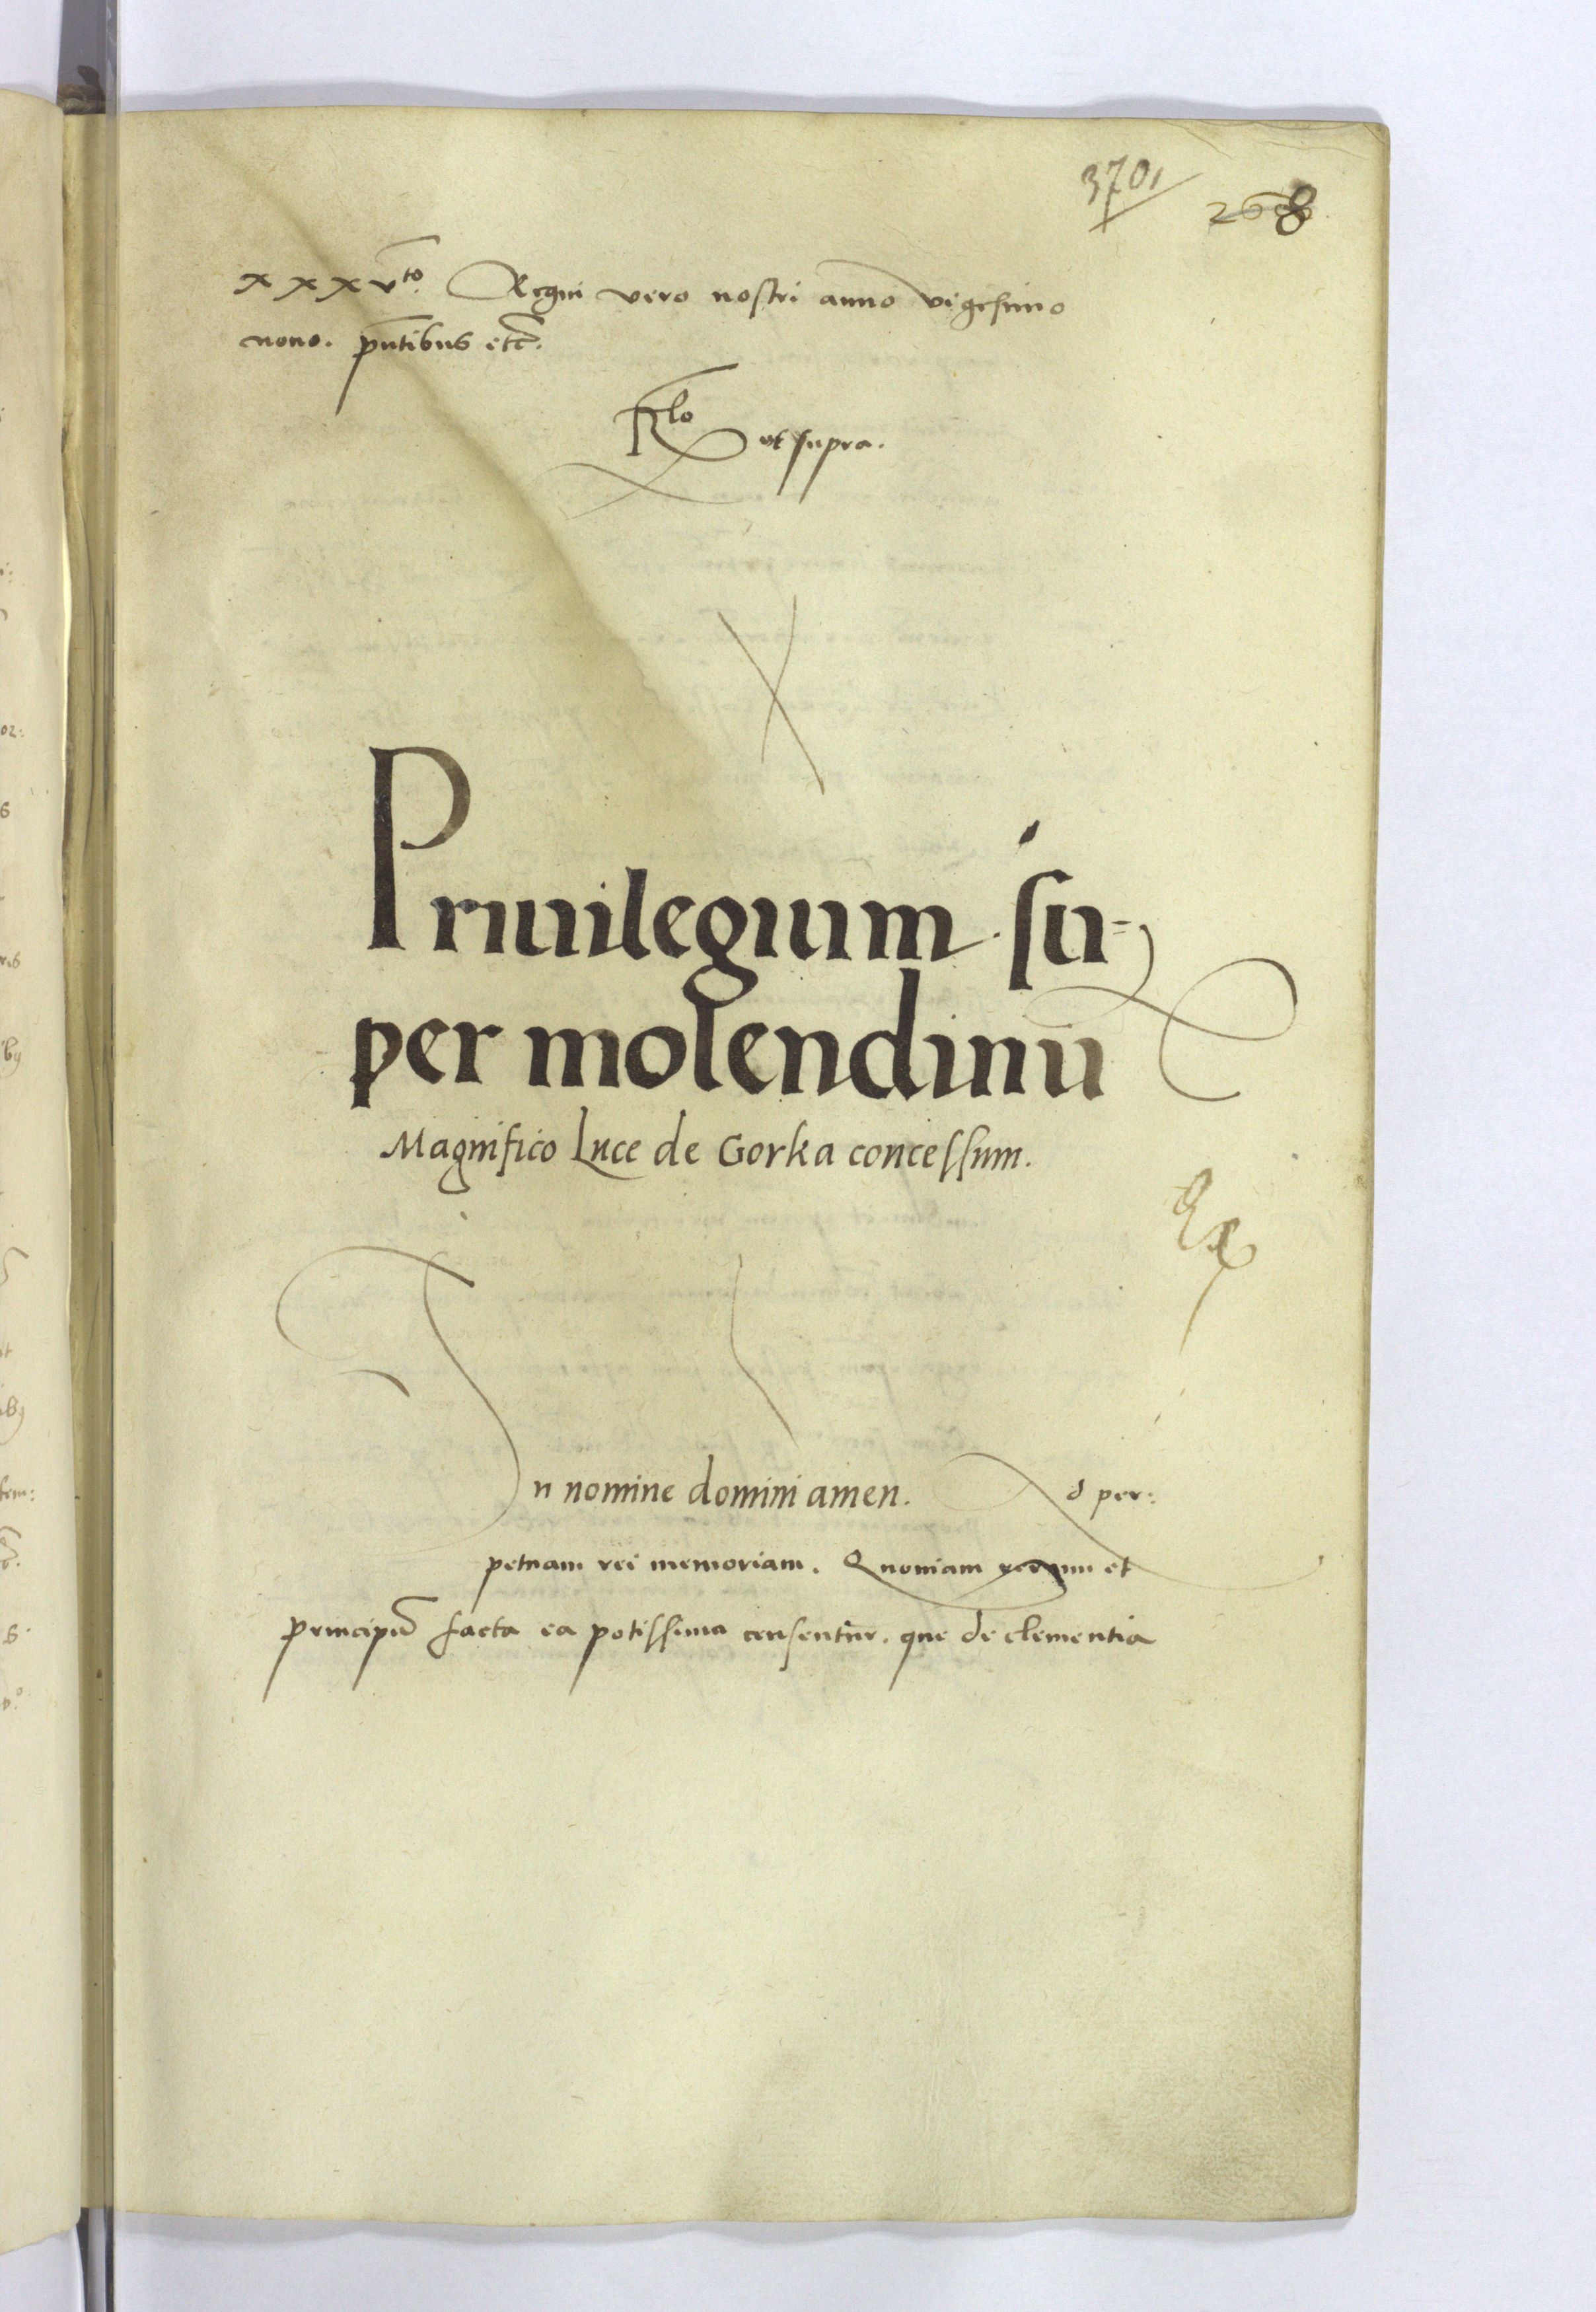 3701
268
xxxv^to. Regni vero nostri anno vigesimo
nono. pn̄tibus etc̄.
R^lo ut supra.
Priuilegium su=
per molendinū
Magnifico Luce de Gorka concessum.
In nomine domini amen. Ad per:
petuam rei memoriam. Quoniam regum et
principū facta ea potissima censentur. que de clementia